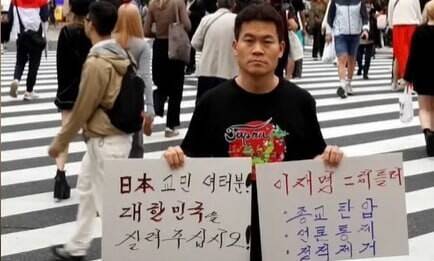 Japan
日本 교민 여러분!
대한민국을
살려주십시오!
이재명 = 히틀러
· 종교 탄압
· 언론 통제
· 정적 제거